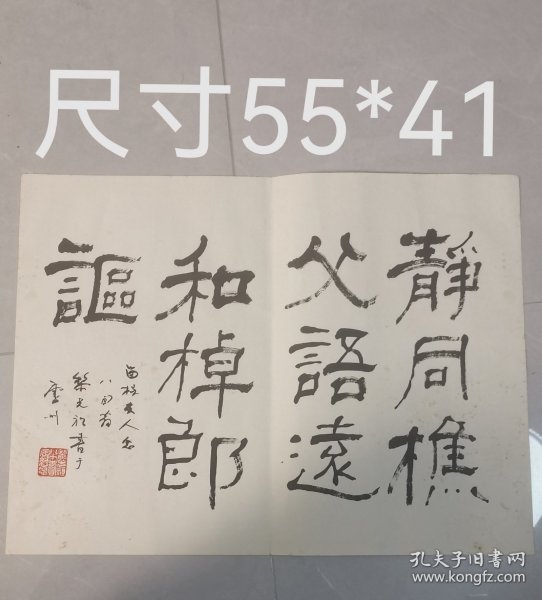 尺寸55*41
靜同樵
父語遠
和棹郎
謳
孔夫子旧书网
www.kongfz.com